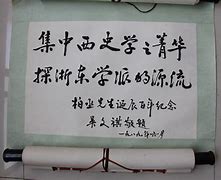 集中西史学之菁华
探浙东学派的源流
柏丞先生诞辰百年纪念
吴文祺敬题
一九八九年六月